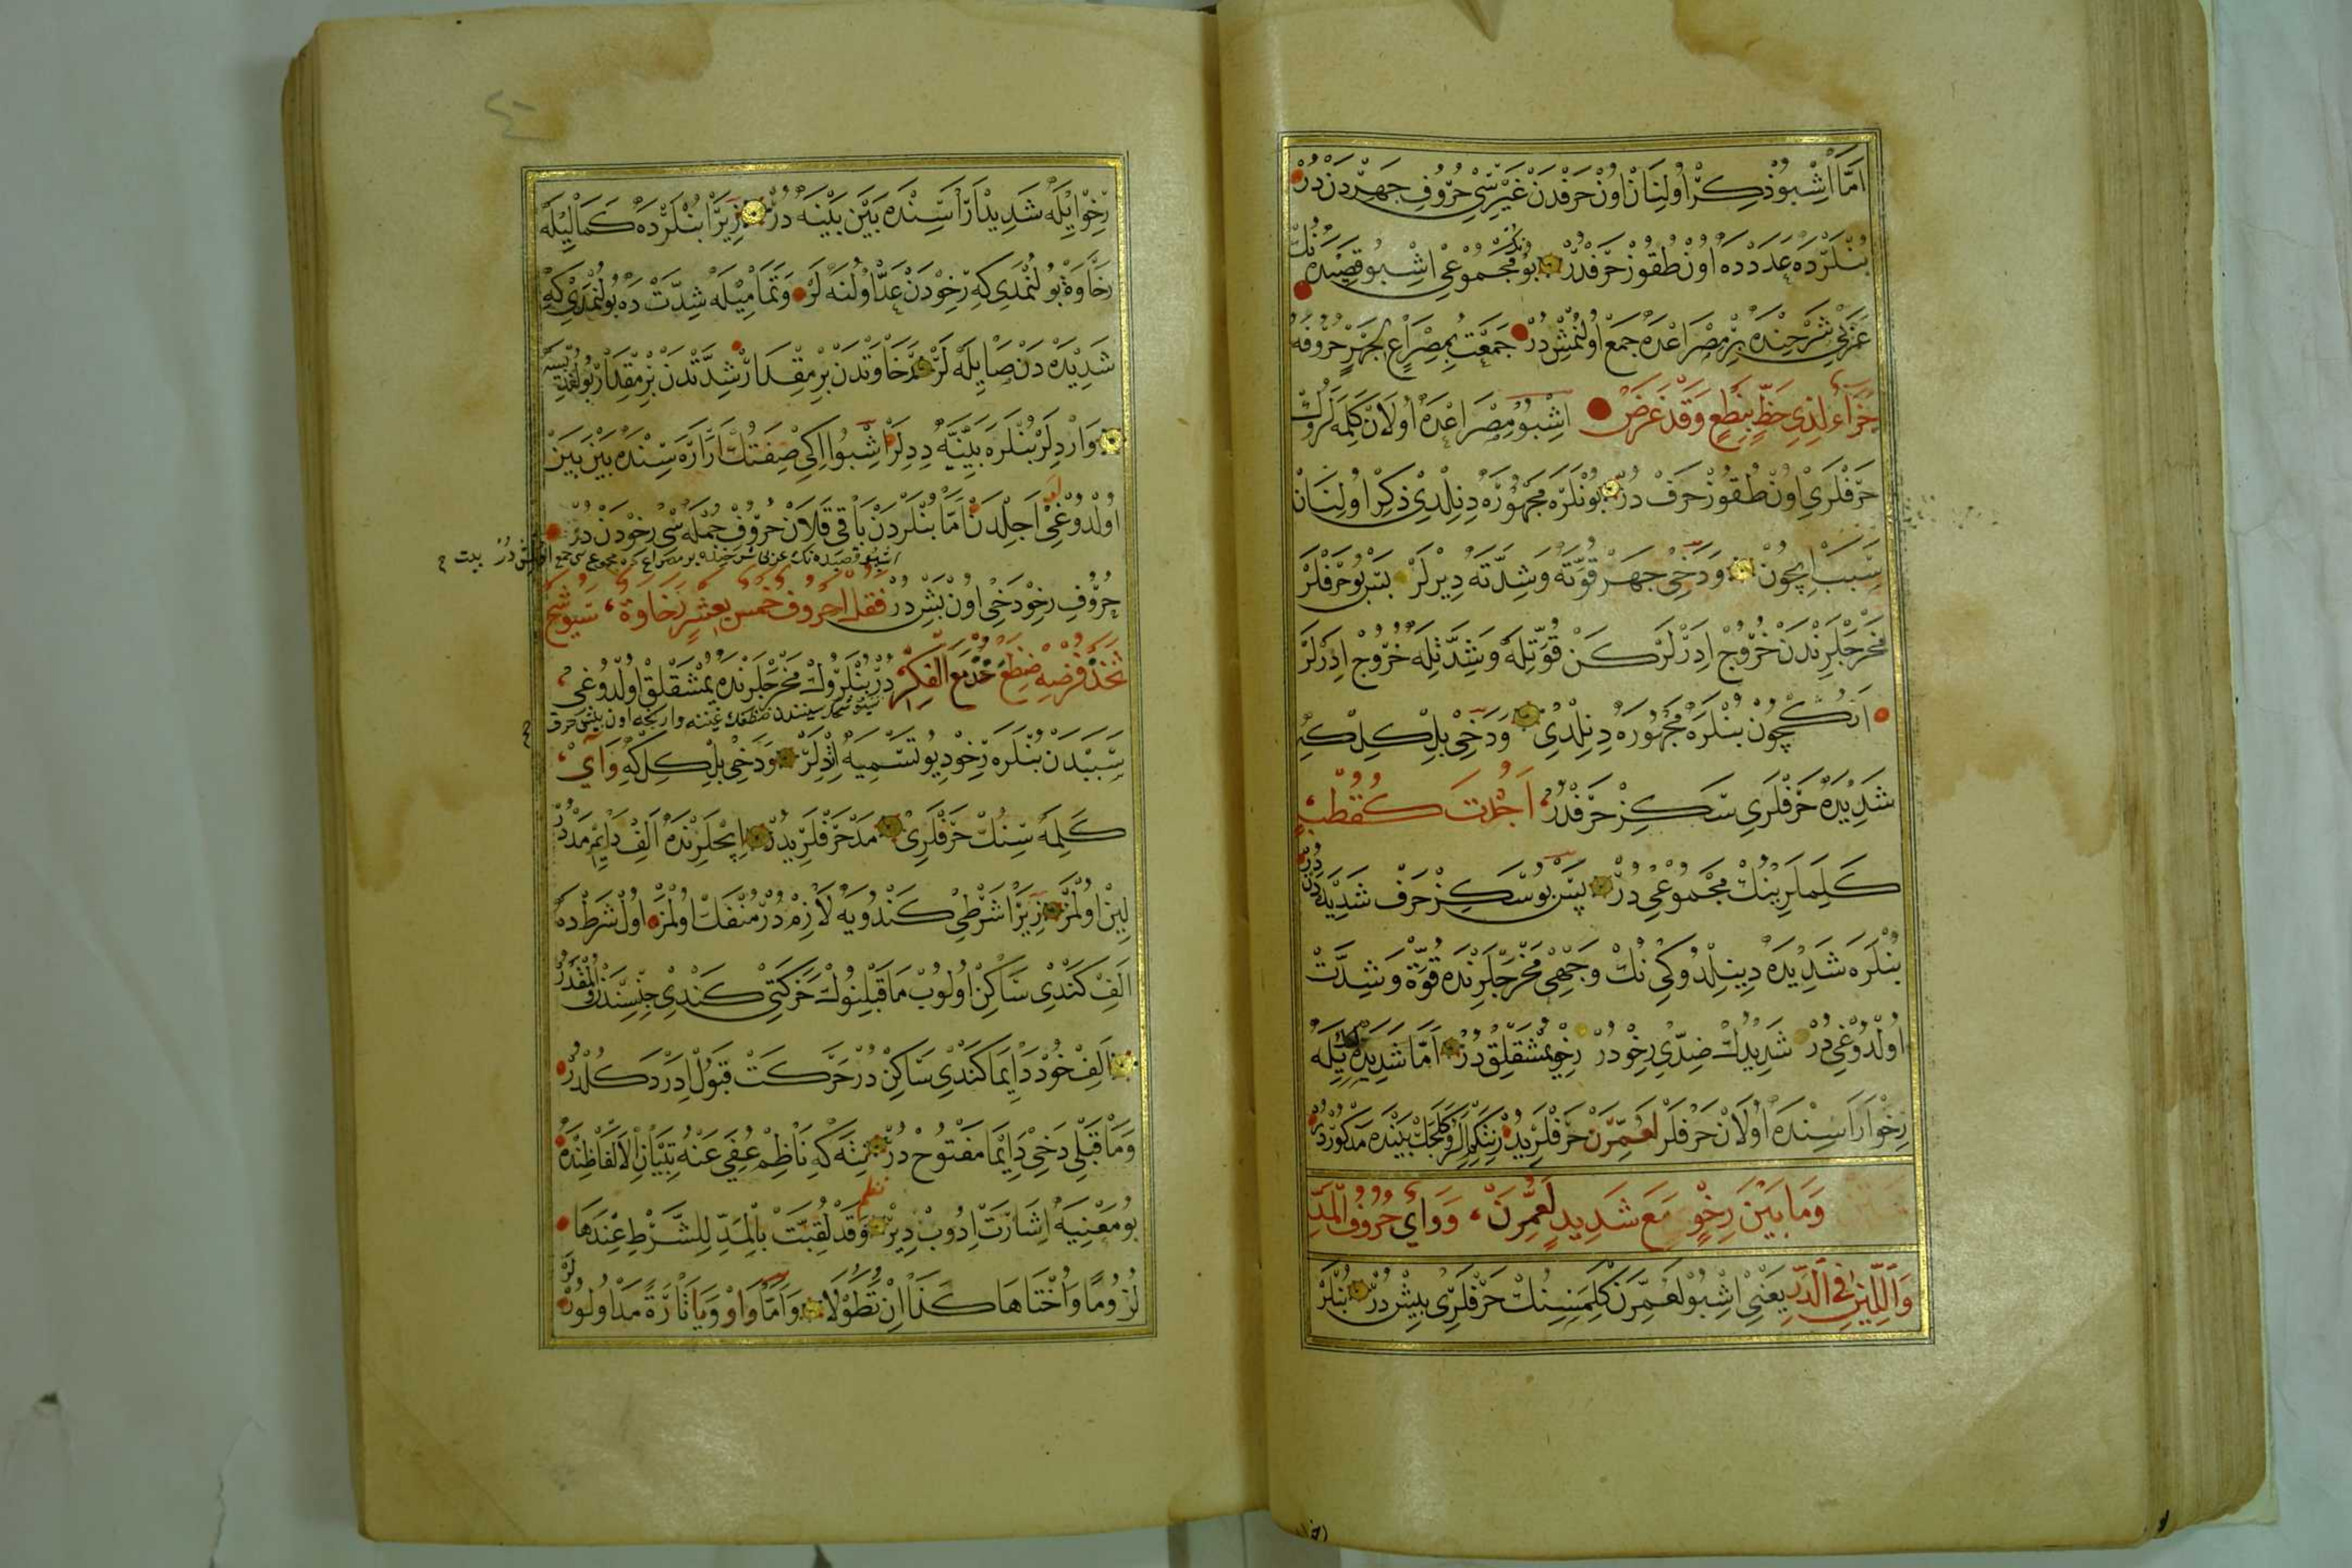 اَمَّا اِشْبُو ذِكِرْ اُولِنَانْ اُونْ حَرْفْدَنْ غَيْرِسِي حُرُوفِ جَهِرْدَنْ دُرْ
بُنْلَرْدَه عَدَدْدَه اُونْ طُقُوزْ حَرْفْدُرْ بُو مَجْمُوعِي اِشْبُو قَصِيدَه نُكْ
عَرَبِي شَرْحِنْدَه بِرْ مِصْرَاعْدَه جَمْعْ اُولُنْمِشْدُرْ جَمَعْتُ بِمِصْرَاعٍ لِجَهْرٍ حُرُوفَهُ
لِذِي حَظٍّ وَقَدْ غَرَضْ اِشْبُو مِصْرَاعْدَه اُولَانْ كَلِمَه لَرُكْ
حَرْفْلَرِي اُونْ طُقُوزْ حَرْفْ دُرْ بُونْلَرَه مَجْهُورَه دِنِلْدِي ذِكِرْ اُولِنَانْ
سَبَبْ اِيچُونْ وَدَخِي جَهَرْ قُوَّتَه وَشِدَّتَه دِيرْلَرْ بَسْ بُو حَرْفْلَرْ
مَخْرَجْلَرِنْدَنْ خُرُوجْ اِدَرْلَرْكَنْ قُوَّتِلَه وَشِدَّتِلَه خُرُوجْ اِدَرْلَرْ
اَنُكْچُونْ بُنْلَرَه مَجْهُورَه دِنِلْدِي وَدَخِي بِلْكِلْ كِه
شَدِيدَه حَرْفْلَرِي سَكِزْ حَرْفْدُرْ اَجَدْتَ كَقُطْبٍ
كَلِمَلَرِينُكْ مَجْمُوعِي دُرْ پَسْ بُو سَكِزْ حَرْفْ شَدِيدَه دَنْ دُرْ
بُنْلَرَه شَدِيدَه دِينِلْدُوكِي نُكْ وَجْهِي مَخْرَجْلَرِنْدَه قُوَّة وَشِدَّتْ
اُولْدُوغِي دُرْ شَدِيدُكْ ضِدِّي رِخْو دُرْ رِخْو يُمْشَقْلِقْ دُرْ اَمَّا شَدِيدَه يِلَه
رِخْو اَرَاسِنْدَه اُولَانْ حَرْفْلَرْ لَعَمِّرَنْ حَرْفْلَرِيدُرْ بَيْتِنْدَه مَذْكُورْدُرْ
وَمَا بَيْنَ رِخْوٍ مَعَ شَدِيدٍ لَعَمِّرَنْ ، وَوَايْ حُرُوفُ الْمَدِّ
وَاللِّينِ فِي يَعْنِي اِشْبُو لَعَمِّرَنْ كَلِمَسِينُكْ حَرْفْلَرِي بِيشْ دُرْ بُنْلَرْ
رِخْو اِيلَه شَدِيدْ اَرَاسِنْدَه بَيْنَ بَيْنَه دُرْ زِيرَا بُنْلَرْدَه كَمَالِيلَه
رَخَاوَة بُولُنْمَدِي كِه رِخْودَنْ عَدّ اُولُنَه لَرْ وَتَمَامِيلَه شِدَّتْ دَه بُولُنْمَدِي كِه
شَدِيدَه دَنْ صَايِلَه لَرْ رَخَاوَتْدَنْ بِرْ مِقْدَارْ شِدَّتْدَنْ بِرْ مِقْدَارْ بُولُنْدِيسَه
وَارْدِلَرْ بُنْلَرَه بَيْنِيَّه دِدِلَرْ اِشْبُو اِكِي صِفَتُكْ اَرَاسِنْدَه بَيْنَ بَيْنَ
اُولْدُوغِي اَجِلْدَنْ اَمَّا بُنْلَرْدَنْ بَاقِي قَلَانْ حُرُوفْ جُمْلَه سِي رِخْودَنْ دُرْ
اشبو قصيده نك عربى شرحنده بر مصراعده مجموعى جمع اولنمش در بيت
حُرُوفِ رِخْو دَخِي اُونْ بَشْ دُرْ فَقُلْ اَحْرُوفُ خَمْسٍ بِعَشْرٍ رَخَاوَةٌ ،
دُرْ بُنْلَرُوكْ مَخْرَجْلَرِنْدَه يُمْشَقْلِقْ اُولْدُوغِي
سَبَبْدَنْ بُنْلَرَه رِخْو دِيُو تَسْمِيَه اِتْدِلَرْ وَدَخِي بِلْكِلْ كِه وَايْ ،
كَلِمَه سِنُكْ حَرْفْلَرِي مَدّ حَرْفْلَرِيدُرْ اِيچْلَرِنْدَه اَلِفْ دَايِمْ مَدّدُرْ
لِينْ اُولْمَزْ زِيرَا شَرْطِي كَنْدُويَه لَازِمْ دُرْ مُنْفَكّ اُولْمَزْ اُولْ شَرْطْدَه
اَلِفْ كَنْدِي سَاكِنْ اُولُوبْ مَا قَبْلِنُوكْ حَرَكَتِي كَنْدِي جِنْسِنْدَنْ اُولْمَقْدُرْ
اَلِفْ خُودْ دَايِمَا كَنْدِي سَاكِنْ دُرْ حَرَكَتْ قَبُولْ اِدَرْ دَكُلْدُرْ
وَمَا قَبْلِي دَخِي دَايِمَا مَفْتُوحْ دُرْ نِتَه كِه نَاظِمْ عُفِيَ عَنْهُ تِبْيَانِ الْاَلْفَاظِنْدَه
بُو مَعْنِيَه اِشَارَتْ اِدُوبْ دِيرْ نظم وَقَدْ لُقِّبَتْ بِالْمَدِّ لِلشَّرْطِ عِنْدَهَا
لُزُومًا وَاُخْتَاهَا كَذَا اِنْ تَطَوَّلَا وَاَمَّا وَاوْ وَيَا تَارَةً مَدّ اُولُورْلَرْ